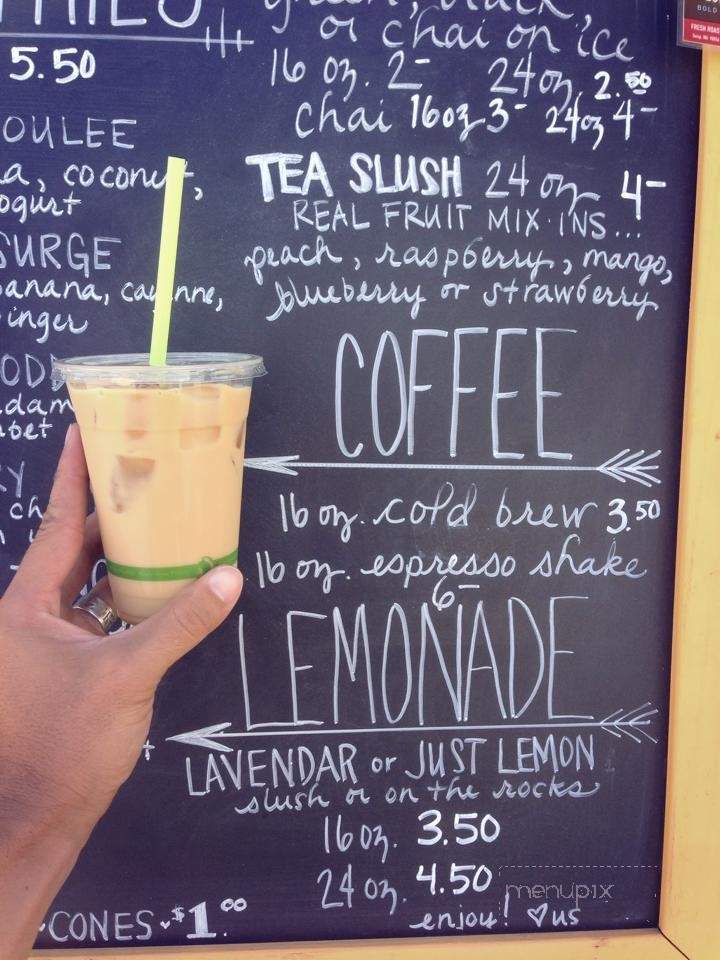 5.50
OULEE
a, coconut,
ogurt
SURGE
anana, cayenne,
inger
dam
bet
ch
CONES - $1.00
green, black,
or chai on ice
16 oz. 2- 24 oz. 2.50
chai 16oz 3- 24oz 4-
TEA SLUSH 24 oz 4-
REAL FRUIT MIX-INS...
peach, raspberry, mango,
blueberry or strawberry
COFFEE
16 oz. cold brew 3.50
16 oz. espresso shake
6-
LEMONADE
LAVENDAR or JUST LEMON
slush or on the rocks
16oz. 3.50
24 oz. 4.50
enjoy! ♡us
menupix
BOLD
FRESH ROAS